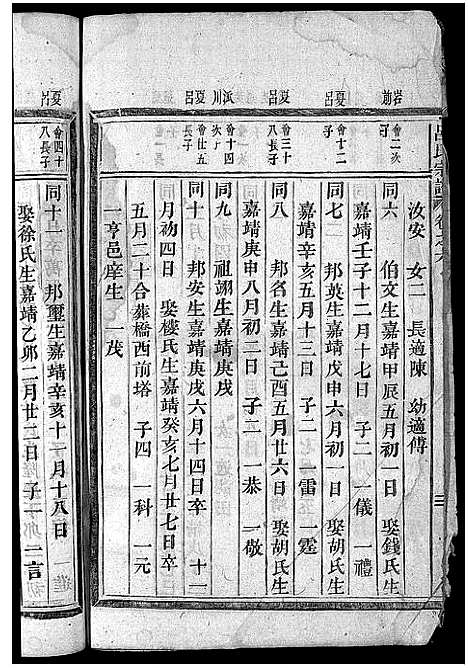 岩前
會二次子
汝安 女二 長適陳 幼適傅
同六 伯文生嘉靖甲辰五月初一日 娶錢氏生
嘉靖壬子十二月十七日 子二 一儀 一禮
夏呂
會十二子
同七 邦英生嘉靖戊申六月初一日 娶胡氏生
嘉靖辛亥五月十三日 子二 一雷 一霆
夏呂
會三十子
同八 邦名生嘉靖己酉五月廿六日 娶胡氏生
嘉靖庚申八月初二日 子二 一恭 一敬
派川
會十四次子
同九 祖翊生嘉靖庚戌
夏呂
會廿五長子
同十 邦安生嘉靖庚戌六月十四日卒 十一
月初四日 娶樓氏生嘉靖癸亥七月廿七日卒
五月二十合葬橋西前塔 子四 一科 一元
一亨邑庠生 一茂
夏呂
會四十八長子
同十一 邦璽生嘉靖辛亥十一月十八日
娶徐氏生嘉靖乙卯二月廿二日 子一 一言